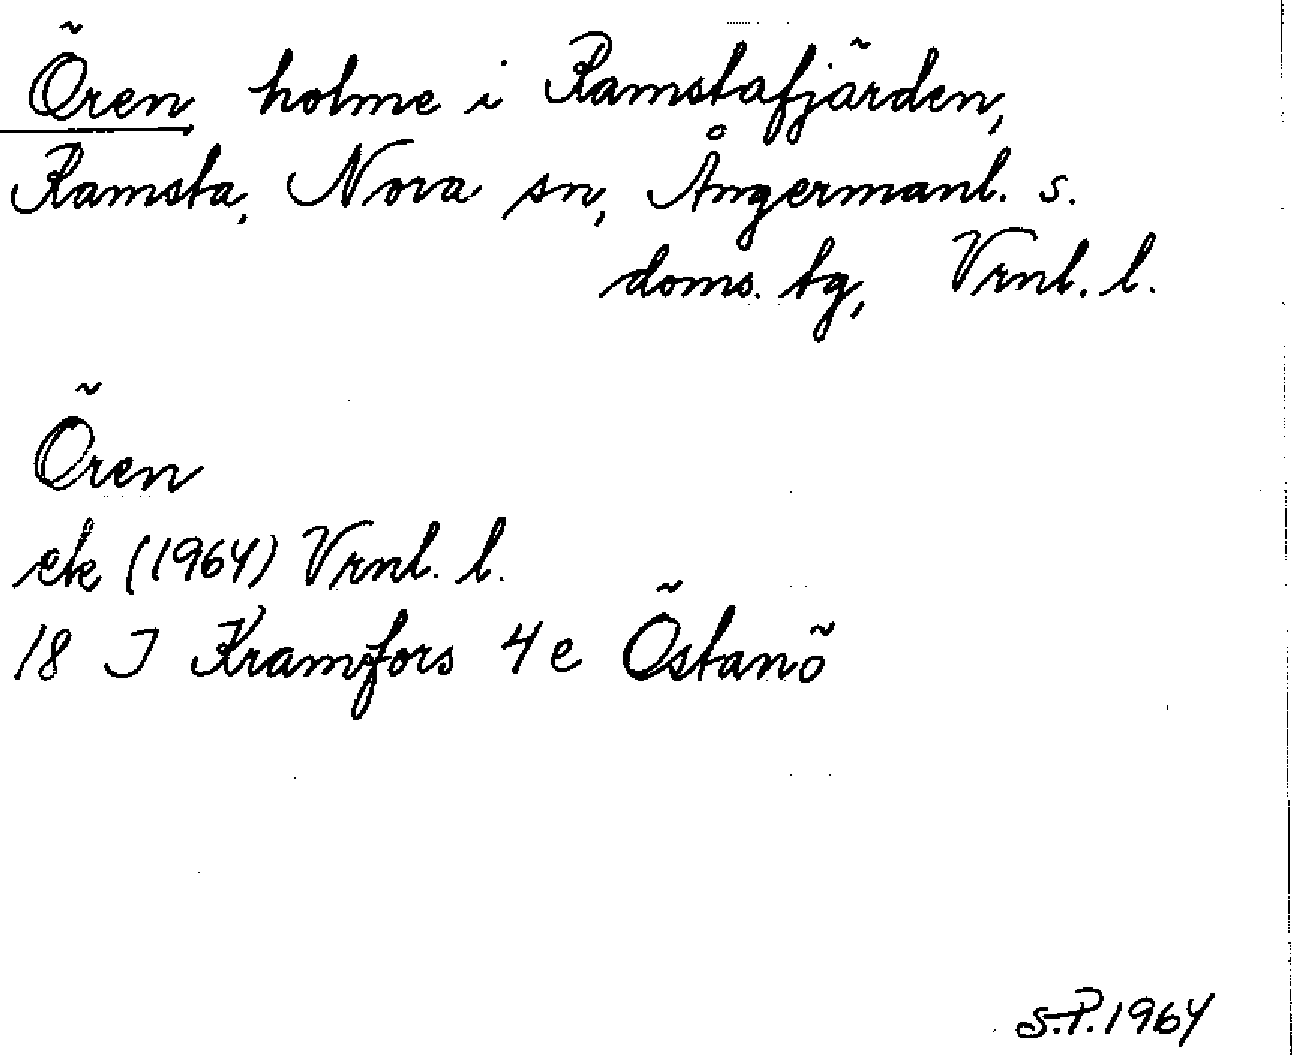 Ören holme i Ramstafjärden,
Ramsta, Nora sn, Ångermanl. s.
doms. tg, Vrnl. l.
Ören
ek (1964) Vrnl. l.
18 J Kramfors 4 e Östanö
S.P. 1964